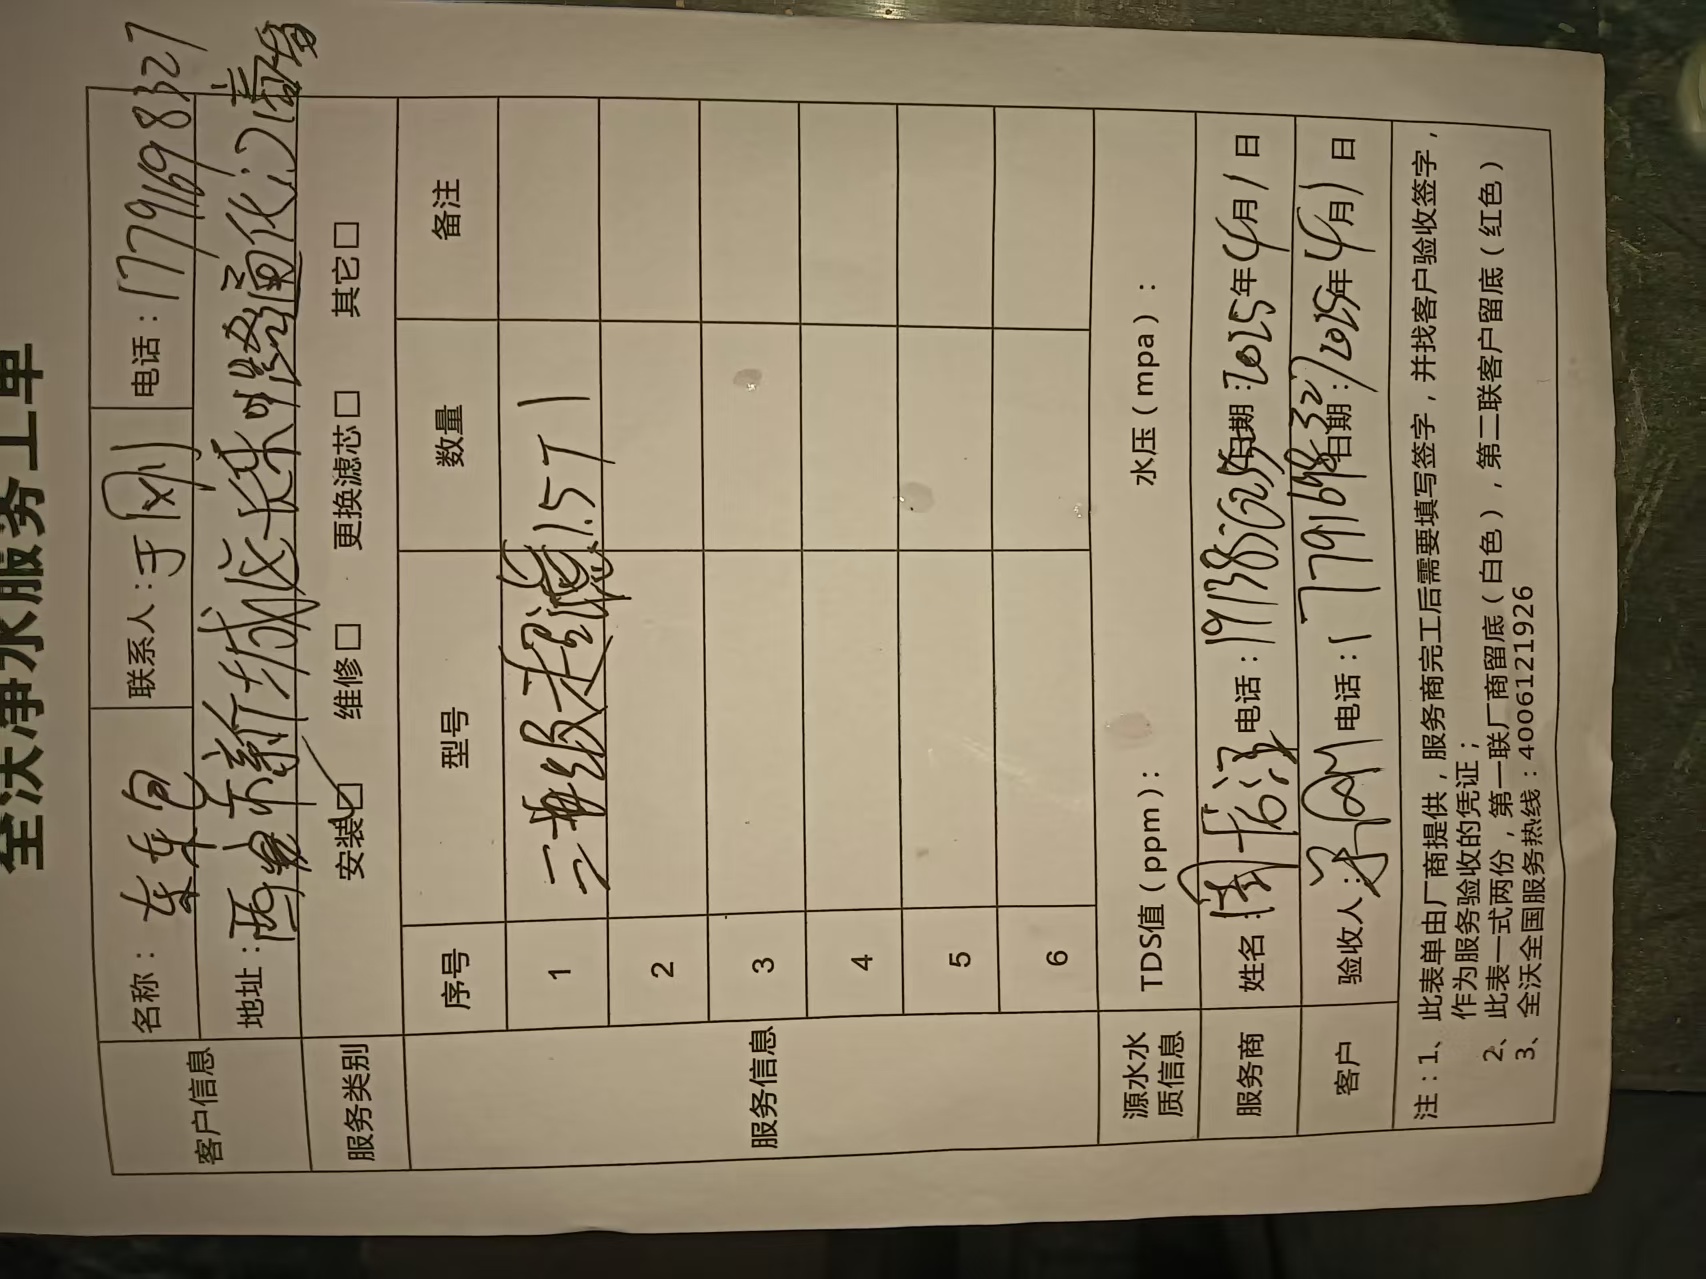 全沃净水服务工单
客户信息
名称：东东包 联系人：于刚 电话：17791698327
地址：西安市新城区长乐路通化门
服务类别 安装☑ 维修□ 更换滤芯□ 其它□
服务信息
序号 型号 数量 备注
1 三级超滤1.5T 1
2
3
4
5
6
源水水质信息 TDS值（ppm）： 水压（mpa）：
服务商 姓名： 电话： 日期：2025年4月1日
客户 验收人：于刚 电话：17791698327 日期：2025年4月1日
注：1、此表单由厂商提供，服务商完工后需要填写签字，并找客户验收签字，
作为服务验收的凭证；
2、此表一式两份，第一联厂商留底（白色），第二联客户留底（红色）
3、全沃全国服务热线：4006121926